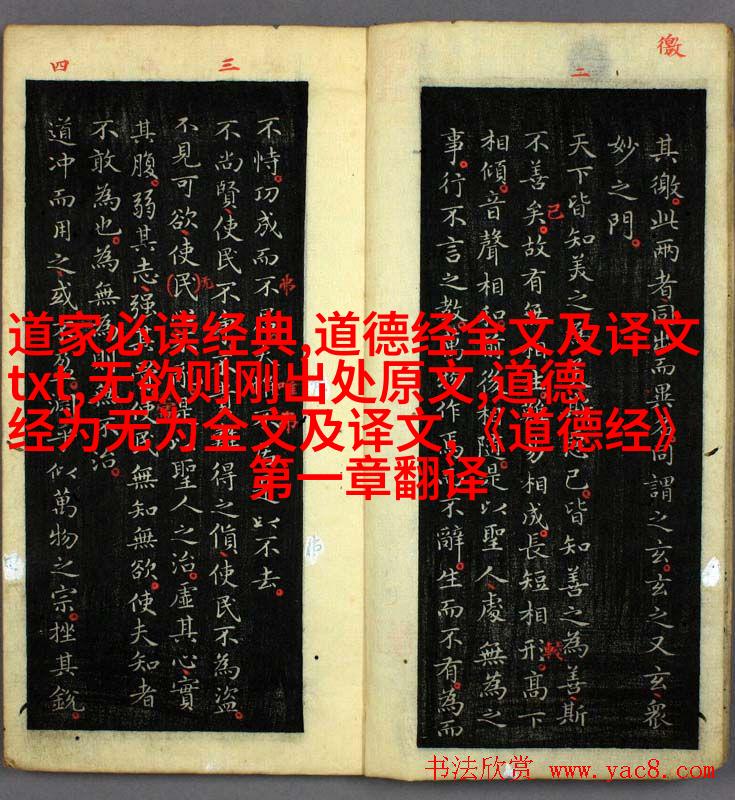 徼
二
其徼。此兩者同出而異同謂之玄。玄之又玄衆
妙之門。
天下皆知美之已。皆知善之為善斯
已
不善矣。故有無相易相成。長短相形。高下
較
相傾。音聲相和。後相是以聖人處無為之
事。行不言之教。作焉而不辭。生而不有。為而
三
不恃。功成而不以不去。
不尚賢使民不難得之貨使民不為盜。
不見可欲使民以聖人之治。虛其心實
无
其腹。弱其志强其使民無知無欲。使夫知者
不敢為也。為無為則無不治。
四
道冲而用之或似萬物之宗。挫其銳
道家必读经典,道德经全文及译文
txt,无欲则刚出处原文,道德
经为无为全文及译文,《道德经》
第一章翻译
书法欣赏 www.yac8.com